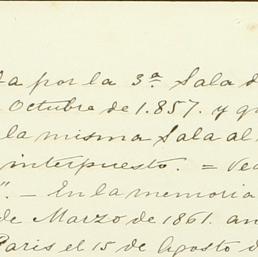 da por la 3ª Sala d
Octubre de 1.857. y qu
la misma Sala al
interpuesto. = Vea
". — En la memoria
de Marzo de 1861. an
Paris el 15 de Agosto d